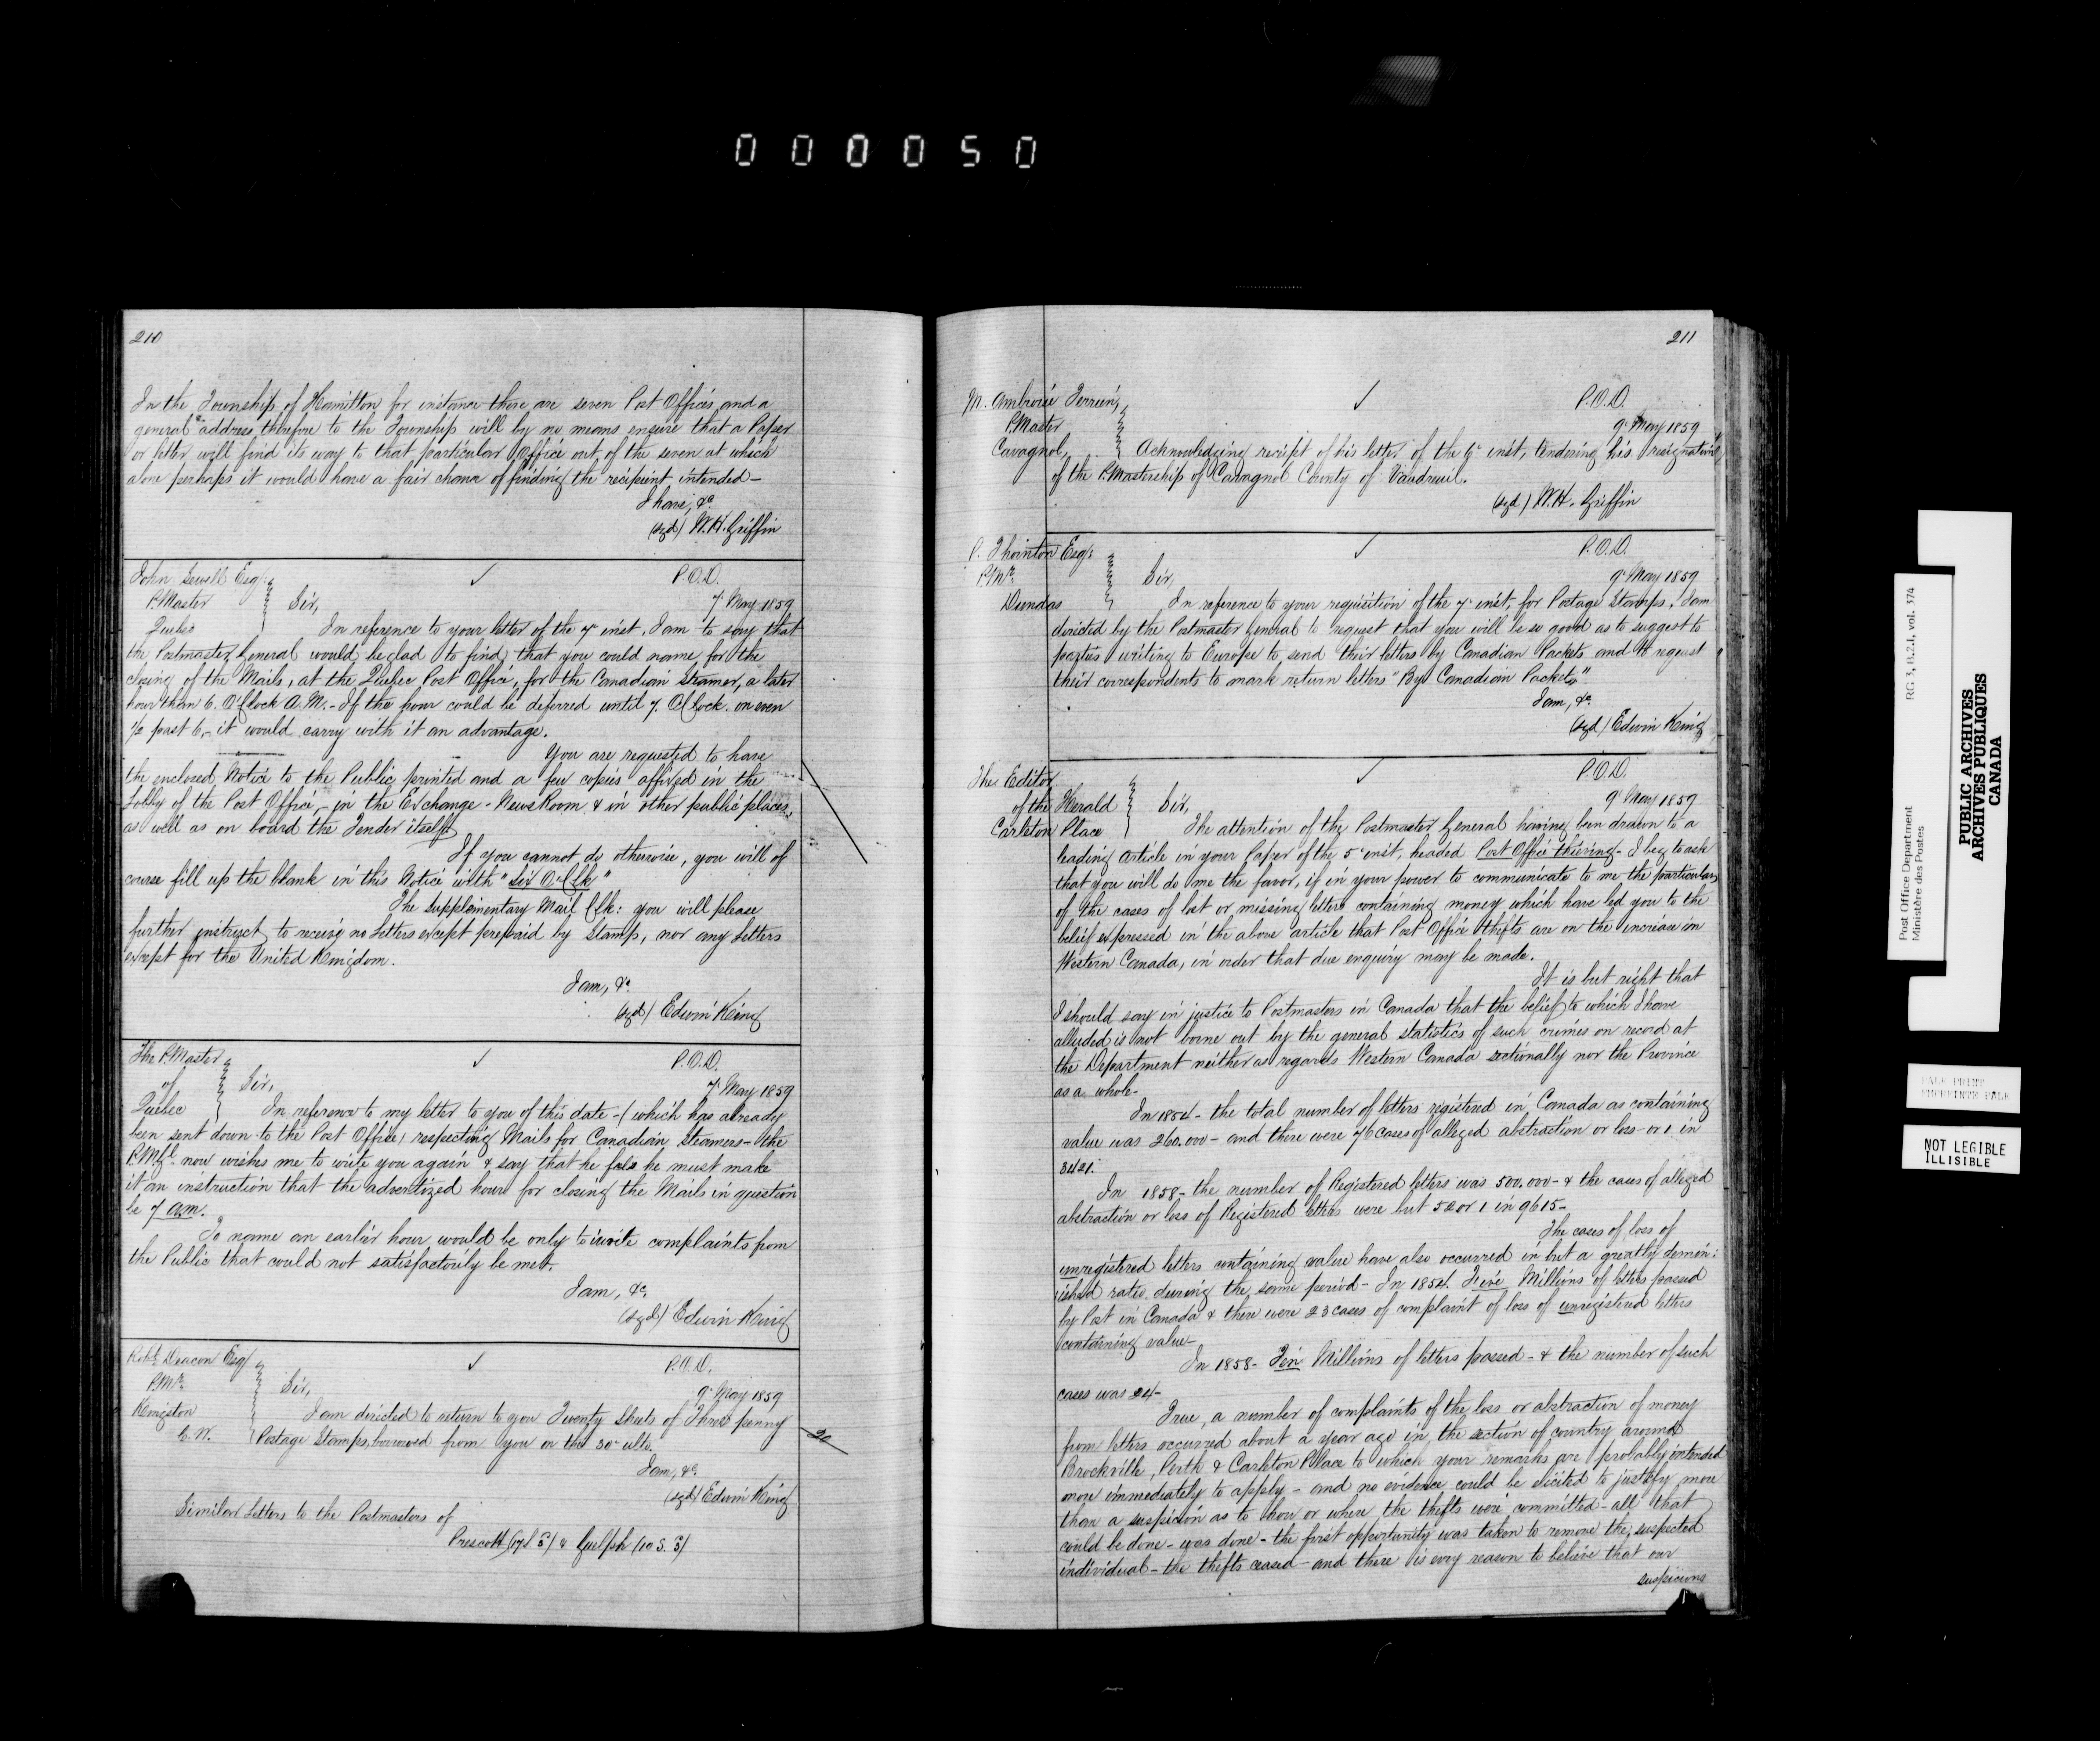 000050
210
In the Township of Hamilton for instance there are seven Post Offices, and a
general address therefore to the Township will by no means ensure that a Paper
or letter will find its way to that particular Office out of the seven at which
alone perhaps it would have a fair chance of finding the recipient intended—
I have, &c
(sgd) W.H. Griffin
John Sewell Esqr. ✓ P.O.D.
P.Master Sir, 7 May 1859
Quebec In reference to your letter of the 7 inst, I am to say that
the Postmaster General would be glad to find that you could name for the
closing of the Mails, at the Quebec Post Office, for the Canadian Steamer, a later
hour than 6. O'Clock A.M.- If the hour could be deferred until 7. O'Clock. or even
½ past 6,- it would carry with it an advantage.
You are requested to have
the enclosed Notice to the Public printed and a few copies affixed in the
Lobby of the Post Office, in the Exchange - News Room & in other public places,
as well as on board the Tender itself.
If you cannot do otherwise, you will of
course fill up the blank in this Notice with "Six O'Clk"
The Supplementary Mail Clk: you will please
further instruct to receive no Letters except prepaid by Stamp, nor any Letters
except for the United Kingdom.
I am, &c.
(sgd) Edwin King
The P.Master ✓ P.O.D.
of Sir, 7 May 1859
Quebec In reference to my letter to you of this date-(which has already
been sent down to the Post Office) respecting Mails for Canadian Steamers- the
P.M.Gl. now wishes me to write you again & say that he feels he must make
it an instruction that the advertized hour for closing the Mails in question
be 7 a.m.
To name an earlier hour would be only to invite complaints from
the Public that could not satisfactorily be met.
I am, &c.
(sgd) Edwin King
Robt. Deacon Esq ✓ P.O.D.
P.Mr. Sir, 9 May 1859
Kingston I am directed to return to you Twenty Sheets of Three penny
C.W. Postage Stamps, borrowed from you on the 30 ulto.
I am, &c.
(sgd) Edwin King
Similar Letters to the Postmasters of
Prescott & Guelph (10 S. 3)
20
211
M. Ambroise Terrien, ✓ P.O.D.
P.Master 9 May 1859
Cavagnol, Acknowledging receipt of his letter of the inst, tendering his resignation
of the P.Mastership of Cavagnol County of Vaudreuil.
(sgd) W.H. Griffin
P. Thornton Esqr: ✓ P.O.D.
P.Mr. Sir, 9 May 1859
Dundas In reference to your requisition of the 7 inst, for Postage Stamps, I am
directed by the Postmaster General to request that you will be so good as to suggest to
parties writing to Europe to send their letters by Canadian Packets and to request
their correspondents to mark return letters "By Canadian Packets,"
I am, &c.
(sgd) Edwin King
The Editor ✓ P.O.D.
of the Herald Sir, 9 May 1859
Carleton Place The attention of the Postmaster General having been drawn to a
leading Article in your Paper of the 5 inst, headed Post Office thieving- I beg to ask
that you will do me the favor, if in your power to communicate to me the particulars
of the cases of lost or missing letters containing money which have led you to the
belief expressed in the above article that Post Office thefts are on the increase in
Western Canada, in order that due enquiry may be made.
It is but right that
I should say in justice to Postmasters in Canada that the belief to which I have
alluded is not borne out by the general statistics of such crimes on record at
the Department neither as regards Western Canada sectionally nor the Province
as a whole-
In 1854- the total number of letters registered in Canada as containing
value was 260.000- and there were 76 cases of alleged abstraction or loss- or 1 in
3421.
In 1858- the number of Registered letters was 500.000- & the cases of alleged
abstraction or loss of Registered letters were but 52 or 1 in 9615-
The cases of loss of
unregistered letters containing value have also occurred in but a greatly dimin:
ished ratio during the same period- In 1854. Five Millions of letters passed
by Post in Canada & there were 23 cases of complaint of loss of unregistered letters
containing value-
In 1858- Ten Millions of letters passed- & the number of such
cases was 24-
True, a number of complaints of the loss or abstraction of money
from letters occurred about a year ago in the section of country around
Brockville, Perth & Carleton Place to which your remarks are probably intended
more immediately to apply- and no evidence could be elicited to justify more
than a suspicion as to how or where the thefts were committed- all that
could be done- was done- the first opportunity was taken to remove the suspected
individual- the thefts ceased- and there is every reason to believe that our
suspicions
Post Office Department RG 3, B.2.1, vol. 374
Ministère des Postes
PUBLIC ARCHIVES
ARCHIVES PUBLIQUES
CANADA
PALE PRINT
NOT LEGIBLE
ILLISIBLE